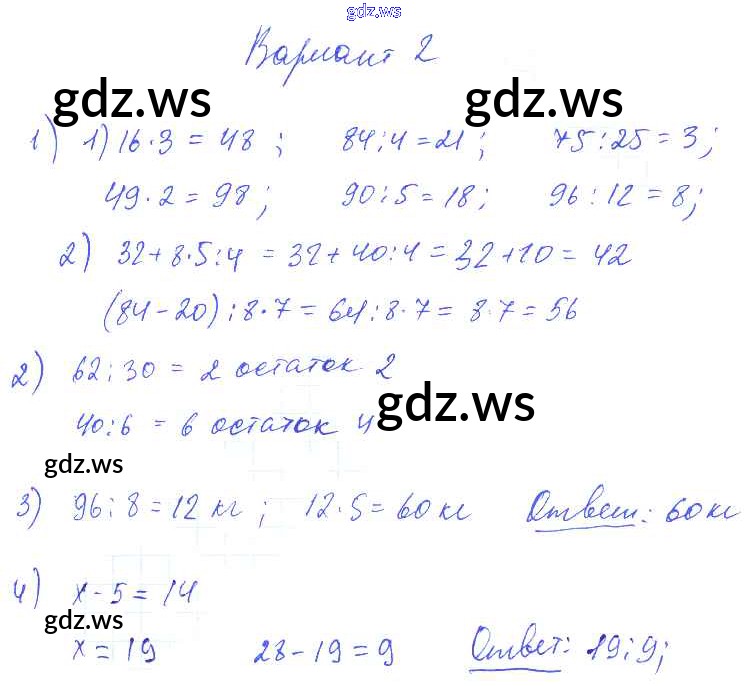 gdz.ws
Вариант 2
gdz.ws gdz.ws
1) 1) 16·3 = 48 ; 84:4 = 21 ; 75:25 = 3 ;
49·2 = 98 ; 90:5 = 18 ; 96:12 = 8 ;
2) 32+8·5:4 = 32+40:4 = 32+10 = 42
(84-20):8·7 = 64:8·7 = 8·7 = 56
2) 62:30 = 2 остаток 2
40:6 = 6 остаток 4
gdz.ws
gdz.ws
3) 96:8 = 12 кг ; 12·5 = 60 кг Ответ: 60 кг
4) x-5 = 14
gdz.ws
x = 19 28-19 = 9 Ответ: 19; 9;